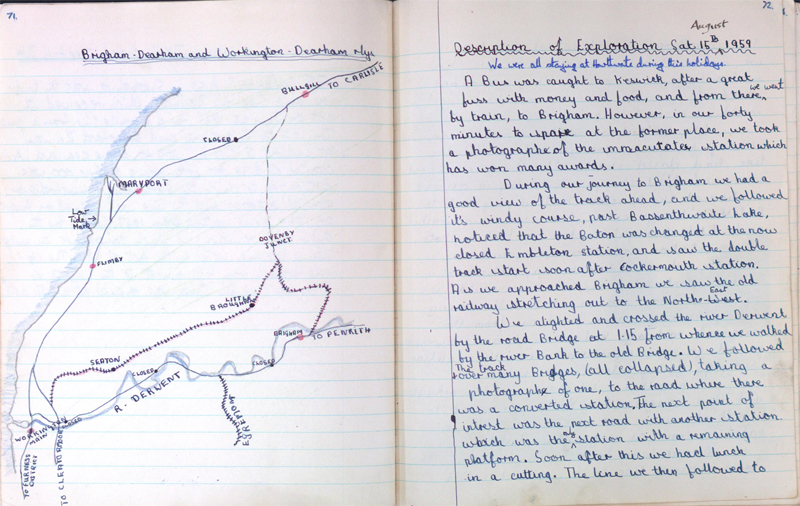 71.
Brigham-Dearham and Workington-Dearham Rlys
BULLGILL
TO CARLISLE
CLOSED
MARYPORT
LOW
TIDE
MARK
DOVENBY
JUNCT.
FLIMBY
LITTLE
BROUGHTON
BRIGHAM
TO PENRITH
SEATON
CLOSED
CLOSED
R. DERWENT
WORKINGTON
MAIN
CLOSED
TO FURNESS
DISTRICT
TO CLEATOR MOOR
72.
August
Description of Exploration Sat 15th, 1959
We were all staying at Hartwate during this holidays.
A Bus was caught to Keswick, after a great
fuss with money and food, and from there, we went
by train, to Brigham. However, in our forty
minutes to spare at the former place, we took
a photographe of the immaculate station which
has won many awards.
During our journey to Brigham we had a
good view of the track ahead, and we followed
it's windy course, past Bassenthwaite Lake,
noticed that the Baton was changed at the now
closed Embleton station, and saw the double
track start soon after Cockermouth station.
As we approached Brigham we saw the old
railway stretching out to the North-West. East
We alighted and crossed the river Derwent
by the road Bridge at 1.15 from whence we walked
by the river Bank to the old Bridge. We followed
The track
over many Bridges, (all collapsed), taking a
photographe of one, to the road where there
was a converted station. The next point of
intrest was the next road with another station
which was the only station with a remaining
platform. Soon after this we had lunch
in a cutting. The line we then followed to